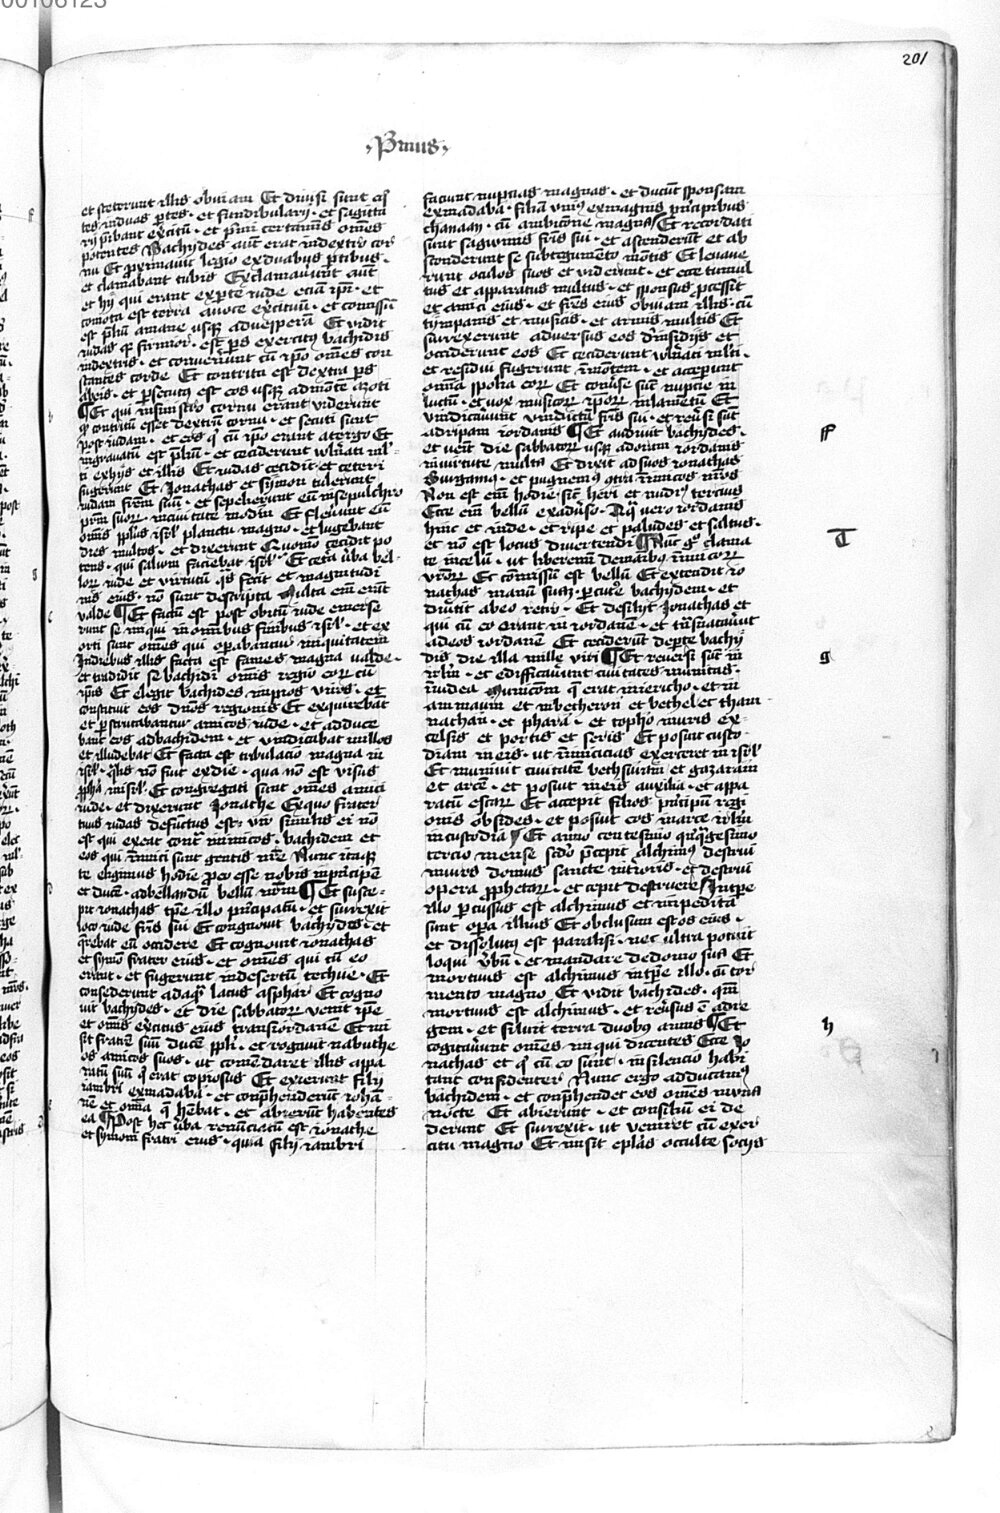 00106123
201
·Primus·
et steterunt illis obuiam Et diuisi sunt eq̄
tes induas ꝑtes · et fundibularij · et sagitta
rij p̄ibant ex̄citū · et p̄mi certaīs om̄es
potentes Bachydes aūt erat indextro cor
nu Et ꝓximauit legio exduabꝰ ꝑtibus ·
et clamabant tubis Exclamauerūt aūt
et hij qui erant exꝑte iude eciā ip̄i · et
com̄ota est terra auoce ex̄cituū · et com̄issū
est p̄liū amane usqꝫ aduesperā Et vidit
iudas qꝫ firmior · est ꝑs exercitꝰ bachidis
indextris · et conuenerūt cū ip̄o om̄es con
stantes corde Et contrita est dextra ꝑs
abeis · et ꝑsecutꝰ est eos usqꝫ admōtē azoti
¶ Et qui insinistro cornu erant viderunt
qꝫ contritū esset dextrū cornu · et secuti sunt
post iudam · et eos qͥ cū ip̄o erant atergo Et
ingrauatū est p̄liū · et ceciderunt vuln̄ati ml̄
ti exhijs et illis Et iudas cecidit et ceteri
fugerunt Et Jonathas et symon tulerunt
iudam fratrē suū · et sepelierunt eū insepulchro
pr̄m suoꝝ · inciuitate modin Et fleuerūt eū
om̄is ppl̄us isrl̄ planctu magno · et lugebant
dies multos · et dixerunt Quomō cecidit po
tens · qui saluum faciebat isrl̄ · Et cetera ūba bel
loꝝ iude et virtutū qͣs fecit et magnitudi
nis eius · nō sunt descripta Multa em̄ erāt
valde ¶ Et factū est post obitū iude emerse
runt se iniqui inom̄ibus finibus isrl̄ · et ex
orti sunt om̄es qui oꝑabantur iniquitatem
Indiebus illis facta est fames magna valde ·
et tradidit se bachidi om̄is regio eoꝝ cū
ip̄is Et elegit bachides impios viros · et
constituit eos dn̄os regionis Et exquirebāt
et ꝑscrutabantur amicos iude · et adduce
bant eos adbachidem · et vindicabat inillos
et illudebat Et facta est tribulacio magna in
isrl̄ · qͣlis nō fuit exdie · qua nō est visus
ꝓpha inisrl̄ Et congregati sunt om̄es amici
iude · et dixerunt Jonathe Exquo frater
tuus iudas defūctus est · vir similis ei nō
est qui exeat contͣ inimicos · bachidem et
eos qui inimici sunt gentis nr̄e Nunc itaqꝫ
te eligimus hodie ꝓeo esse nobis inp̄ncipē
et ducē · adbellandū bellū nr̄m ¶ Et susce
pit ionathas tp̄e illo p̄ncipatū · et surrexit
loco iude fratris sui Et cognouit bachides · et
q̄rebat eū occidere Et cognouit ionathas
et symō frater eius · et om̄es qui cū eo
erant · et fugerunt indesertū techue · Et
consederunt adaqͣ lacus asphar Et cogno
uit bachydes · et die sabbatoꝝ venit ip̄e
et om̄is ex̄citus eius transiordanē Et mi
sit fratrē suū ducē ppl̄i · et rogauit nabuthe
os amicos suos · ut com̄odaret illis appa
ratū suū qͥ erat copiosus Et exierunt filij
iambri exmadaba · et compͣhenderunt iohā
nē et om̄ia q̄ habebat · et abierūt habentes
ea ¶ Post hec ūba renūciatū est ionathe
et symoni fratri eius · quia filij iambri
faciunt nupcias magnas · et ducūt sponsam
exmadaba · filiā vniꝰ exmagnis pͥncipibus
chanaan · cū ambicione magna Et recordati
sunt sagwinis fratris sui · et ascenderūt et ab
sconderunt se subtegumēto mōtis Et leuaue
runt oculos suos et viderunt · et ecce tumul
tus et apparatus multus · et sponsus ꝓcessit
et amici eius · et fratres eius obuiam illis · cū
tympanis et musicis · et armis multis Et
surrexerunt aduersus eos dinsidijs et
occiderunt eos Et ceciderunt vuln̄ati ml̄ti ·
et residui fugerunt īmōtem · et acceperunt
om̄ia spolia eoꝝ Et conu̅se sūt nupcie in
luctū · et vox musicoꝝ ip̄oꝝ inlamētū Et
vindicauerunt vindictā fratris sui · et reu̅si sūt
adripam iordanis ¶ Et audiuit bachydes ·
et venit die sabbatoꝝ usqꝫ adoram iordanis
īuirtute multa Et dixit adsuos ionathas
Surgamꝰ · et pugnemꝰ cōtra īimicos nr̄os
Non est em̄ hodie sicut heri et nudiꝰ tercius
Ecce em̄ bellū exaduerso · Aqͣ vero iordanis
hinc et inde · et ripe et paludes et saltus ·
et nō est locus diuertendi ¶ Nūc gͦ clama
te incelū · ut liberemini demanibꝰ īimicoꝝ
vr̄oꝝ Et com̄issū est bellū Et extendit io
nathas manū suā ꝑcutere bachydem · et
diuertit abeo retro · Et desilijt Jonathas et
qui cū eo erant in iordanē · et trāsnatauerūt
adeos iordanē Et ceciderūt deꝑte bachy
dis die illa mille viri ¶ Et reuersi sūt in
irlm̄ · et edificauerūt ciuitates munitas ·
iniudea Municōm q̄ erat inJericho · et in
ammaum et inbetheron et bethel et tham
nathan · et phara · et topho muris ex
celsis et portis et seris Et posuit custo
diam ineis · ut inimicicias exerceret in isrl̄
Et muniuit ciuitatē bethsuram et gazaram
et arcē · et posuit ineis auxilia · et appa
ratū escaꝝ Et accepit filios pͥncipū regi
onis obsides · et posuit eos inarce irlm̄
incustodia Et anno centesimo quīqͣgesimo
tercio mense scd̄o p̄cepit alchimꝰ destrui
muros domus sancte inͥoris · et destrui
opera ꝓphetaꝝ · et cepit destruere / Intp̄e
illo ꝑcussus est alchimus et impedita
sunt opa illius Et obclusum est os eius ·
et dissolutꝰ est paralisi · nec ultra potuit
loqui v̄bū · et mandare dedomo sua Et
mortuus est alchimus intp̄e illo · cū tor
mento magno Et vidit bachides · qm̄
mortuus est alchimus · et reu̅sus ē adre
gem · et siluit terra duobꝰ annis ¶ Et
cogitauerūt om̄es iniqui dicentes Ecce io
nathas et qͥ cū eo sunt · insilencio habi
tant confidenter Nunc ergo adducamꝰ
bachidem · et conp̄hendet eos om̄es inuna
nocte Et abierunt · et consiliū ei de
derunt Et surrexit · ut veniret cū exer
citu magno Et misit ep̄las occulte socijs
f
T
g
h